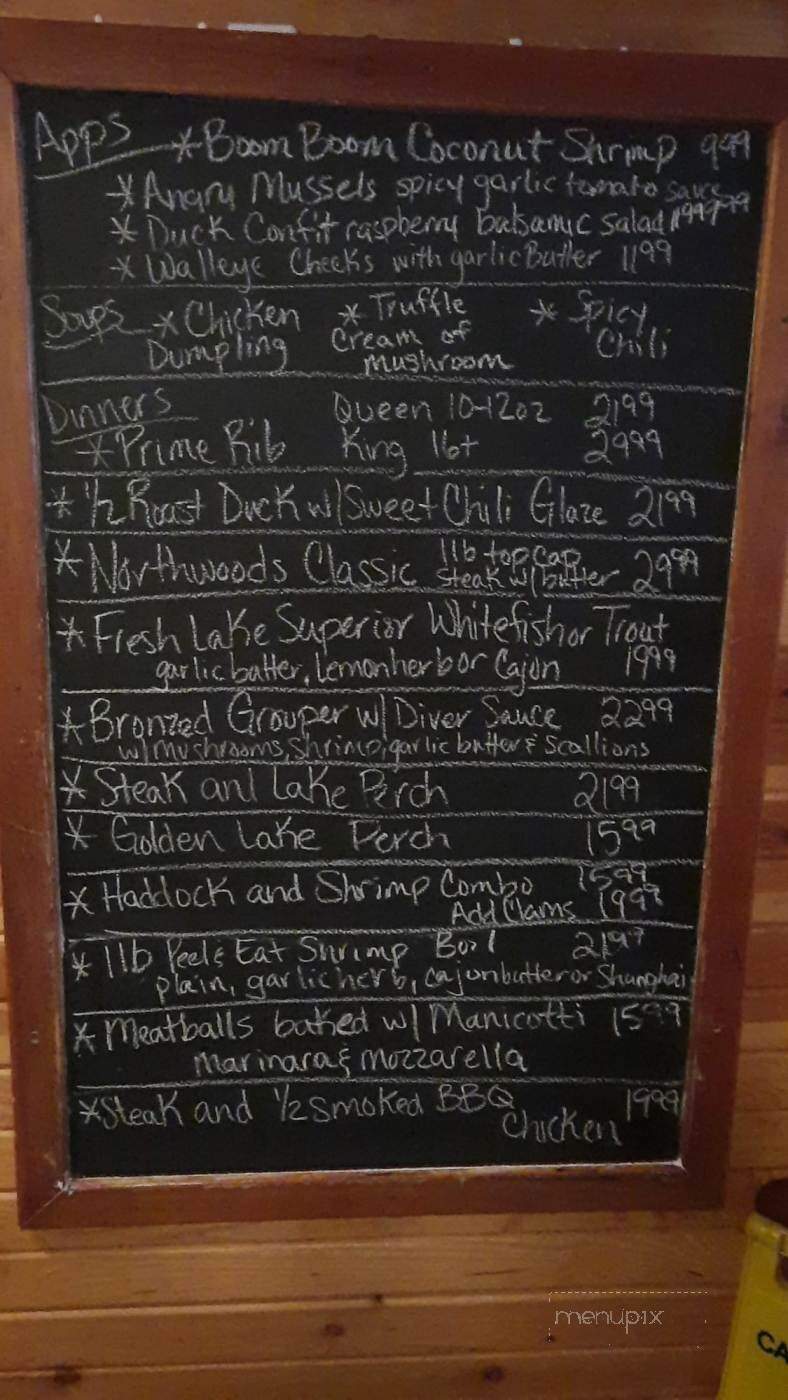 Apps * Boom Boom Coconut Shrimp 999
* Angry Mussels spicy garlic tomato sauce 999
* Duck Confit raspberry balsamic salad 1199
* Walleye Cheeks with garlic Butter 1199
Soups * Chicken Dumpling * Truffle Cream of mushroom * Spicy Chili
Dinners Queen 10-12oz 2199
* Prime Rib King 16+ 2999
* 1/2 Roast Duck w/ Sweet Chili Glaze 2199
* Northwoods Classic 1lb top cap steak w/ butter 2999
* Fresh Lake Superior Whitefish or Trout
garlic batter, Lemon herb or Cajon 1999
* Bronzed Grouper w/ Diver Sauce 2299
w/ mushrooms, shrimp, garlic butter & Scallions
* Steak and Lake Perch 2199
* Golden Lake Perch 1599
* Haddock and Shrimp Combo 1599
Add Clams 1999
* 1lb Peel & Eat Shrimp Boil 2199
plain, garlic herb, Cajon butter or Shanghai
* Meatballs baked w/ Manicotti 1599
marinara & mozzarella
* Steak and 1/2 Smoked BBQ 1999
Chicken
menupix
CA